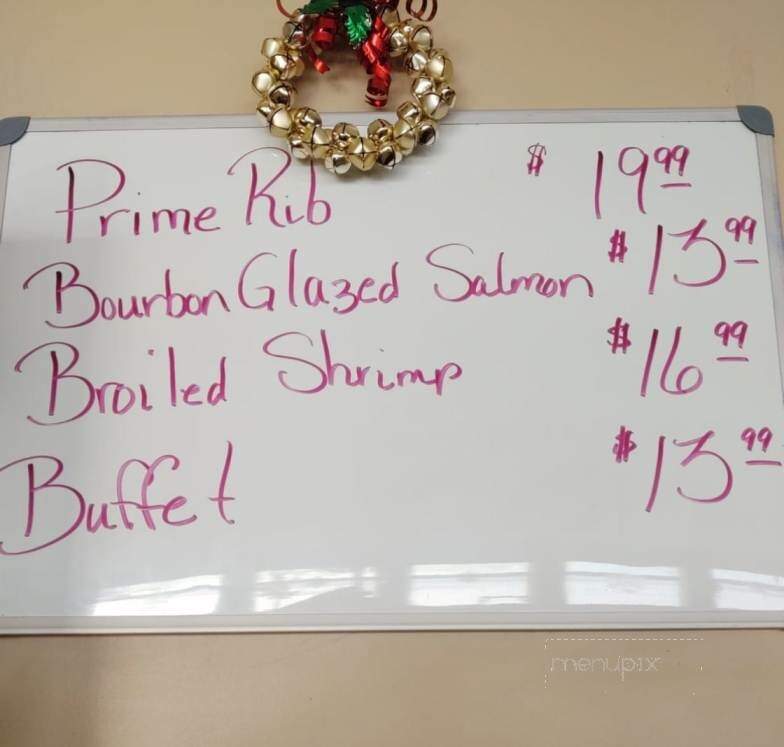 Prime Rib $ 19.99
Bourbon Glazed Salmon $13.99
Broiled Shrimp $16.99
Buffet $13.99
menupix